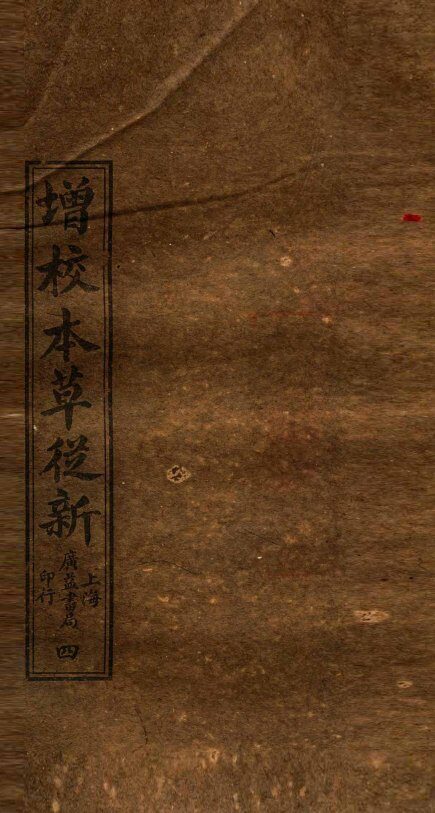 增校本草從新
上海
廣益書局
印行
四